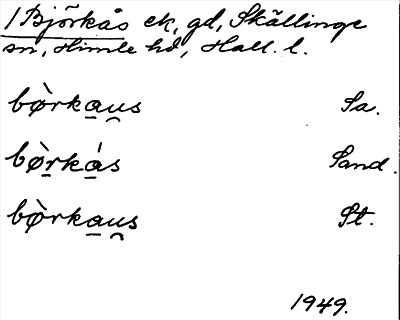 1 Björkås ek, gd, Skällinge
sn, Himle hd, Hall. l.
bȯ̖rka̲u̯s Sa.
bø̀r̲ká̲s Sand.
bø̀rka̲u̯s St.
1949.